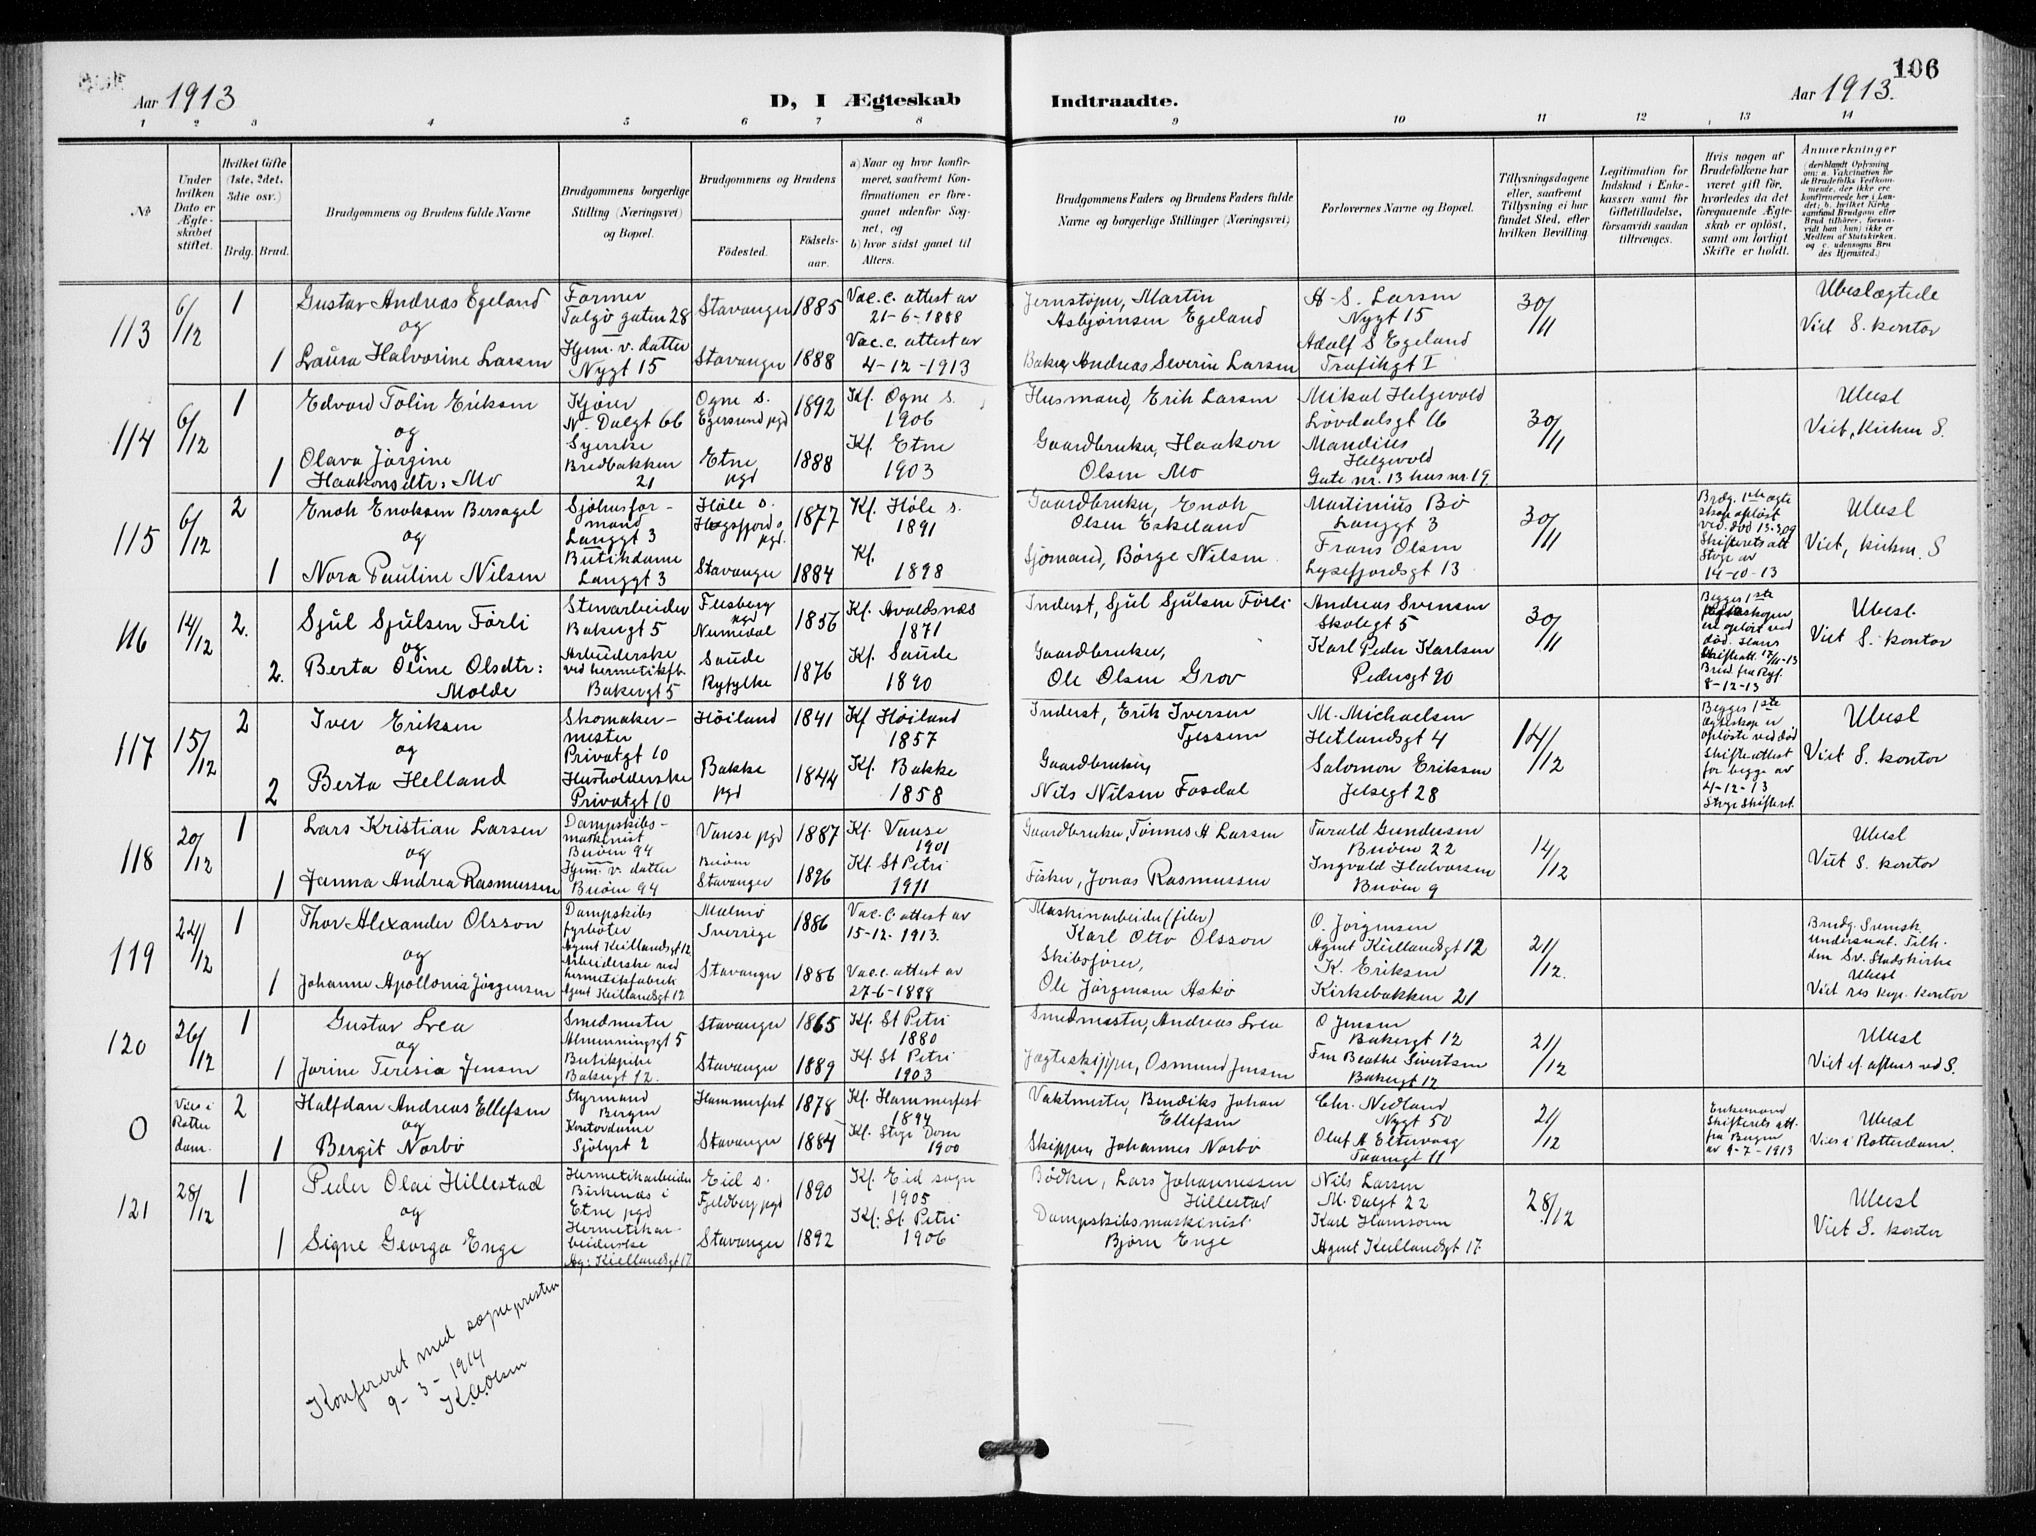 Aar 1913
D, I Ægteskab
Indtraadte.
106
Aar 1913.
1 2 3 4 5 6 7 8 9 10 11 12 13 14
No
Under hvilken Dato er Ægteskabet stiftet.
Hvilket Gifte (1ste, 2det, 3die osv.)
Brdg. Brud.
Brudgommens og Brudens fulde Navne
Brudgommens borgerlige Stilling (Næringsvei) og Bopæl.
Brudgommens og Brudens
Födested.
Födselsaar.
a) Naar og hvor konfirmeret, saafremt Konfirmationen er foregaaet udenfor Sognet, og
b) hvor sidst gaaet til Alters.
Brudgommens Faders og Brudens Faders fulde Navne og borgerlige Stillinger (Næringsvei)
Forlovernes Navne og Bopæl.
Tillysningsdagene eller, saafremt Tillysning ei har fundet Sted, efter hvilken Bevilling
Legitimation for Indskud i Enkekassen samt for Giftetilladelse, forsaavidt saadan tiltrænges.
Hvis nogen af Brudefolkene har været gift för, hvorledes da det foregaaende Ægteskab er oplöst, samt om lovligt Skifte er holdt.
Anmerkninger (deriblandt Oplysning om: a. Vakcination for de Brudefolks Vedkommende, der ikke ere konfirmerede her i Landet; b. hvilket Kirkesamfund Brudgom eller Brud tilhörer, forsaavidt han (hun) ikke er Medlem af Statskirken, og c. udensogns Brudes Hjemsted.)
113
6/12
1
Gustav Andreas Egeland
og
1
Laura Halvorine Larsen
Former
Talgö gaten 28
Hjem. v. datter
Nygt 15
Stavanger 1885
Stavanger 1888
Vac. c. attest av
21-6-1888
Vac. c. attest av
4-12-1913
Jernstøper, Martin
Asbjørnsen Egeland
Baker, Andreas Severin Larsen
A. S. Larsen
Nygt 15
Adolf S Egeland
Trafikgt I
30/11
Ubeslægtede
Viet S. kontor
114
6/12
1
Edvard Tolin Eriksen
og
1
Olava Jörgine
Haakonsdtr: Mo
Kjører
N. Dalgt 66
Syerske
Bredbakken
21
Ogne s.
Egersund pgd
1892
Etne
pgd
1888
Kf. Ogne s.
1906
Kf. Etne
1903
Husmand, Erik Larsen
Gaardbruker, Haakon
Olsen Mo
Mikal Helgevold
Lövdalsgt 16
Mandius
Helgevold
Gate nr. 13 hus nr. 19.
30/11
Ubesl
Viet, Kirken S.
115
6/12
2
Enok Enoksen Bersagel
og
1
Nora Pauline Nilsen
Sjöhusfor-
mand
Langgt 3
Butikdame
Langgt 3
Höle s.
Høgsfjord s
pgd.
1877
Stavanger 1884
Kf. Höle s.
1891
Kf.
1898
Gaardbruker, Enok
Olsen Eskeland
Sjömand, Börge Nilsen
Martinius Bö
Langgt 3
Frans Olsen
Lysefjordsgt 13
30/11
Brdg. 1ste ægte
skap oplöst
ved död 13-3-09
Skifterets att
Stvgr av
14-10-13
Ubesl
Viet, kirken. S
116
14/12
2.
Sjul Sjulsen Förli
og
2.
Berta Oline Olsdtr:
Molde
Stenarbeider
Bakergt 5
Arbeiderske
ved hermetikfb.
Bakergt 5
Flesberg
pgd
Numedal
1856
Saude
Ryfylke
1876
Kf. Avaldsnes
1871
Kf. Saude
1890
Inderst, Sjul Sjulsen Förli
Gaardbruker,
Ole Olsen Grov
Andreas Svensen
Skolegt 5
Karl Peder Karlsen
Pedersgt 90
30/11
Begges 1ste
ere oplöst ved
död. Hans
Skifteatt. 12/11-13
Brud. fra Ryf.
8-12-13
Ubesl.
Viet S. kontor
117
15/12
2
Iver Eriksen
og
2
Berta Helland
Skomaker-
mester
Privatgt 10
Husholderske
Privatgt 10
Höiland 1841
Bakke
pgd
1844
Kf Höiland
1857
Kf. Bakke
1858
Inderst, Erik Iversen
Tjessem
Gaardbruker,
Nils Nilsen Fosdal
M. Michaelsen
Hetlandsgt 4
Salomon Eriksen
Jelsegt 28
14/12
Begges 1ste
ægteskap er
oplöste ved död
Skifteattest
for begge av
4-12-13
Stvgr Skifteret.
Ubesl
Viet S. kontor
118
20/12
1
Lars Kristian Larsen
og
1
Janna Andrea Rasmussen
Dampskibs-
maskinist
Buöen 94
Hjem. v. datter
Buöen 94
Vanse pgd 1887
Buöen
Stavanger 1896
Kf. Vanse
1901
Kf. St Petri
1911
Gaardbruker, Tönnes A Larsen
Fisker, Jonas Rasmussen
Tarald Gundersen
Buöen 22
Ingvald Halvorsen
Buöen 9
14/12
Ubesl
Viet S. kontor
119
24/12
1
Thor Alexander Olsson
og
1
Johanne Apollonia Jörgensen
Dampskibs
fyrböter
Agent Kiellandsgt 12
Arbeiderske ved
hermetikfabrik
Agent Kiellandsgt 12
Malmö
Sverrige
1886
Stavanger 1886
Vac. c. attest av
15-12-1913.
Vac. c. attest av
27-6-1888
Maskinarbeider (filer)
Karl Otto Olsson
Skibsförer,
Ole Jörgensen Askö
O. Jörgensen
Agent Kiellandsgt 12
K. Eriksen
Kirkebakken 21
21/12.
Brudg. Svensk.
undersaat. Tilh.
den Sv. Stadskirke
Ubesl
Viet res kap. kontor
120
26/12
1
Gustav Svea
og
1
Jorine Teresia Jensen
Smedmester
Almenningsgt 5
Butikpike
Bakergt 12.
Stavanger 1865
Stavanger 1889
Kf. St Petri
1880
Kf. St Petri
1903
Smedmester, Andreas Svea
Jægteskipper, Osmund Jensen
O Jensen
Bakergt 12
Fru Beathe Sivertsen
Bakergt 12
21/12
Ubesl
Viet ef. aftens ved S.
0
Vies i
Rotter
dam.
2
Halfdan Andreas Ellefsen
og
1
Bergit Norbö
Styrmand
Bergen
Kontordame
Sjölyst 2
Hammerfest 1878
Stavanger 1884
Kf. Hammerfest
1894
Kf. Stvgr Dom
1900
Vaktmester, Bendiks Johan
Ellefsen
Skipper, Johannes Norbö
Chr. Nedland
Nygt 50
Olaf A Eltervaag
Taarngt 11
21/12
Enkemand
Skifterets att.
fra Bergen
av 9-7-1913
Ubesl
Vies i Rotterdam.
121
28/12
1
Peder Olai Hillestad
og
1
Signe Georga Enge
Hermetikarbeider
Birkenes i
Etne pgd
Hermetikar-
beiderske
Ag: Kiellandsgt 17
Eid s.
Fjeldberg pgd
1890
Stavanger 1892
Kf. Eid sogn
1905
Kf: St Petri
1906
Bödker, Lars Johannessen
Hillestad
Dampskibsmaskinist
Björn Enge
Nils Larsen
M. Dalgt 22
Karl Hamsonn
Agent Kiellandsgt 17.
28/12
Ubesl
Viet S. kontor
Konfereret med sognepresten
9-3-1914
K. Olsen